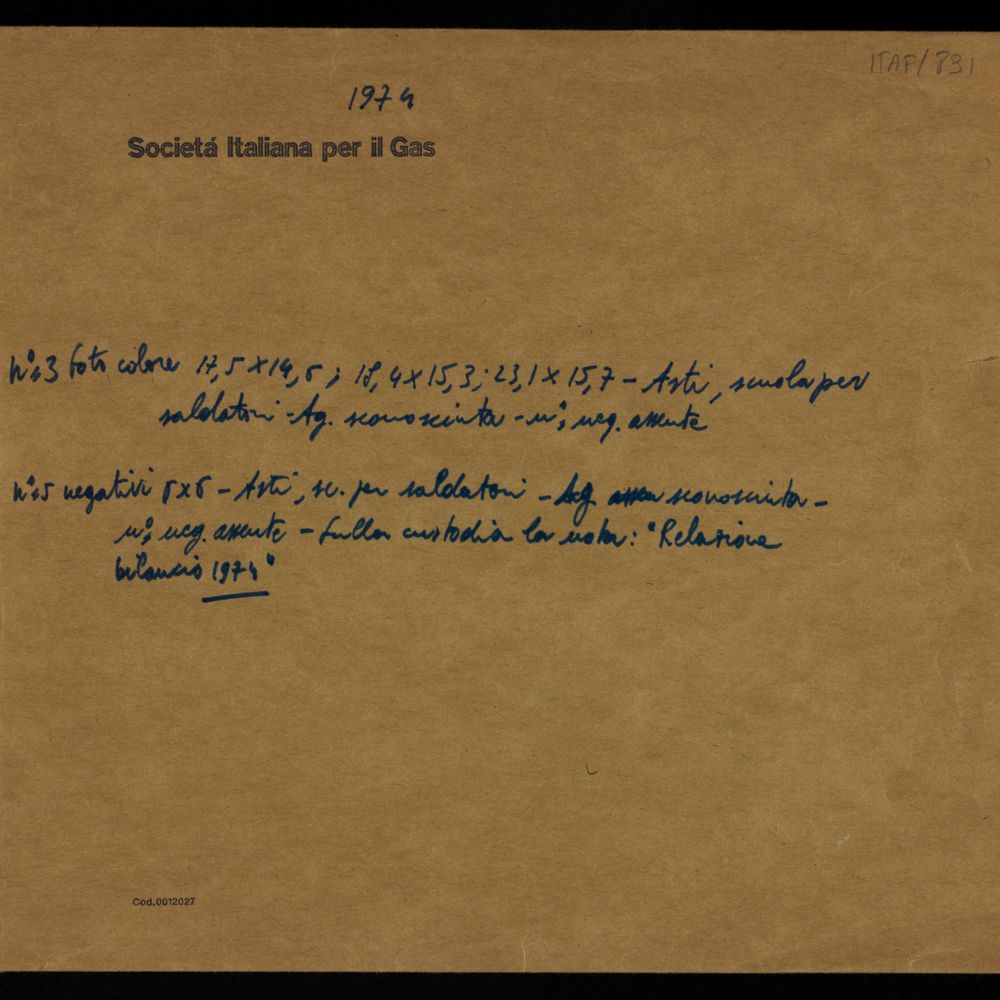 ITAF/831
1974
Societá Italiana per il Gas
n°: 3 foto colore 17,5 x 14,6; 18,4 x 15,3; 23,1 x 15,7 - Asti, scuola per
saldatori - Ag. sconosciuta - n°; neg. assente
n°: 5 negativi 6x6 - Asti, sc. per saldatori - Ag. sconosciuta -
n°; neg. assente - sulla custodia la nota: "Relazione
bilancio 1974"
Cod.0012027